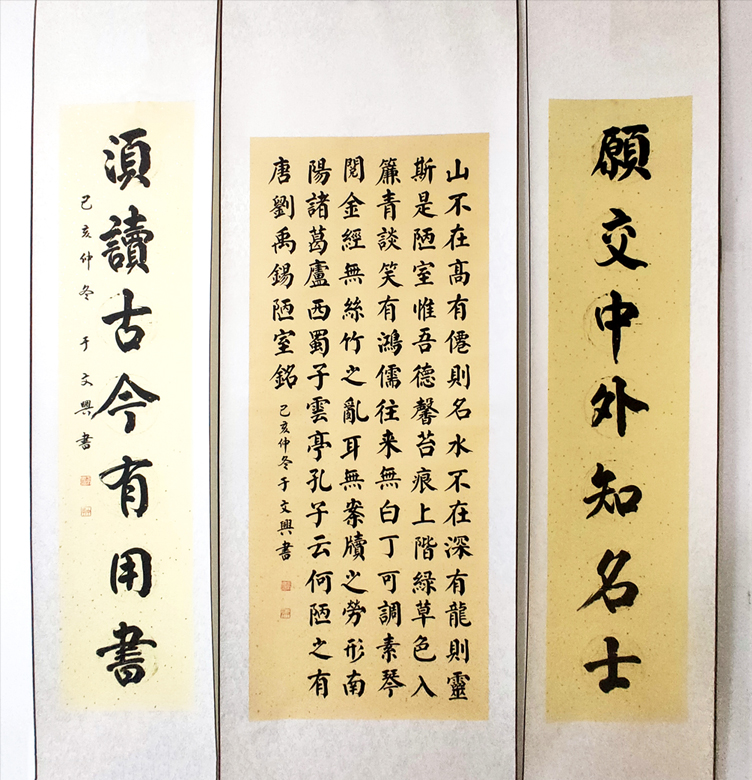 願交中外知名士
山不在高有僊則名水不在深有龍則靈
斯是陋室惟吾德馨苔痕上階綠草色入
簾青談笑有鴻儒往来無白丁可調素琴
閱金經無絲竹之亂耳無案牘之勞形南
陽諸葛廬西蜀子雲亭孔子云何陋之有
唐劉禹錫陋室銘
己亥仲冬于文興書
湏讀古今有用書
己亥仲冬 于文興書